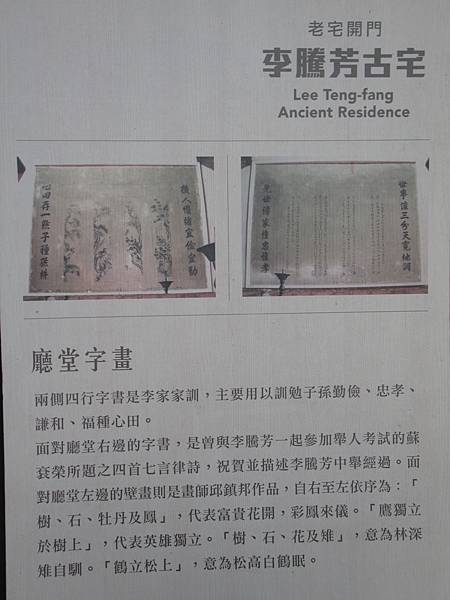 老宅開門
李騰芳古宅
Lee Teng-fang
Ancient Residence
心田存一點子種孫耕
傳家惟忠惟孝
廳堂字畫
兩側四行字書是李家家訓，主要用以訓勉子孫勤儉、忠孝、
謙和、福種心田。
面對廳堂右邊的字書，是曾與李騰芳一起參加舉人考試的蘇
袞榮所題之四首七言律詩，祝賀並描述李騰芳中舉經過。面
對廳堂左邊的壁畫則是畫師邱鎮邦作品，自右至左依序為：「
樹、石、牡丹及鳳」，代表富貴花開，彩鳳來儀。「鷹獨立
於樹上」，代表英雄獨立。「樹、石、花及雉」，意為林深
雉自馴。「鶴立松上」，意為松高白鶴眠。